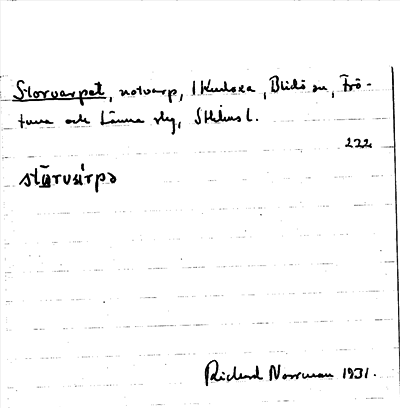 Storvarpet, notvarp, i Kudoxa, Blidö sn, Frö-
tuna och Länna slg, Sthlms l.
222
Richard Norrman 1931.